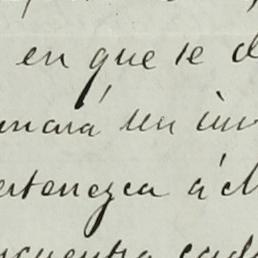 en que se d
mará un inv
ertenezca á M
ncuentra cada